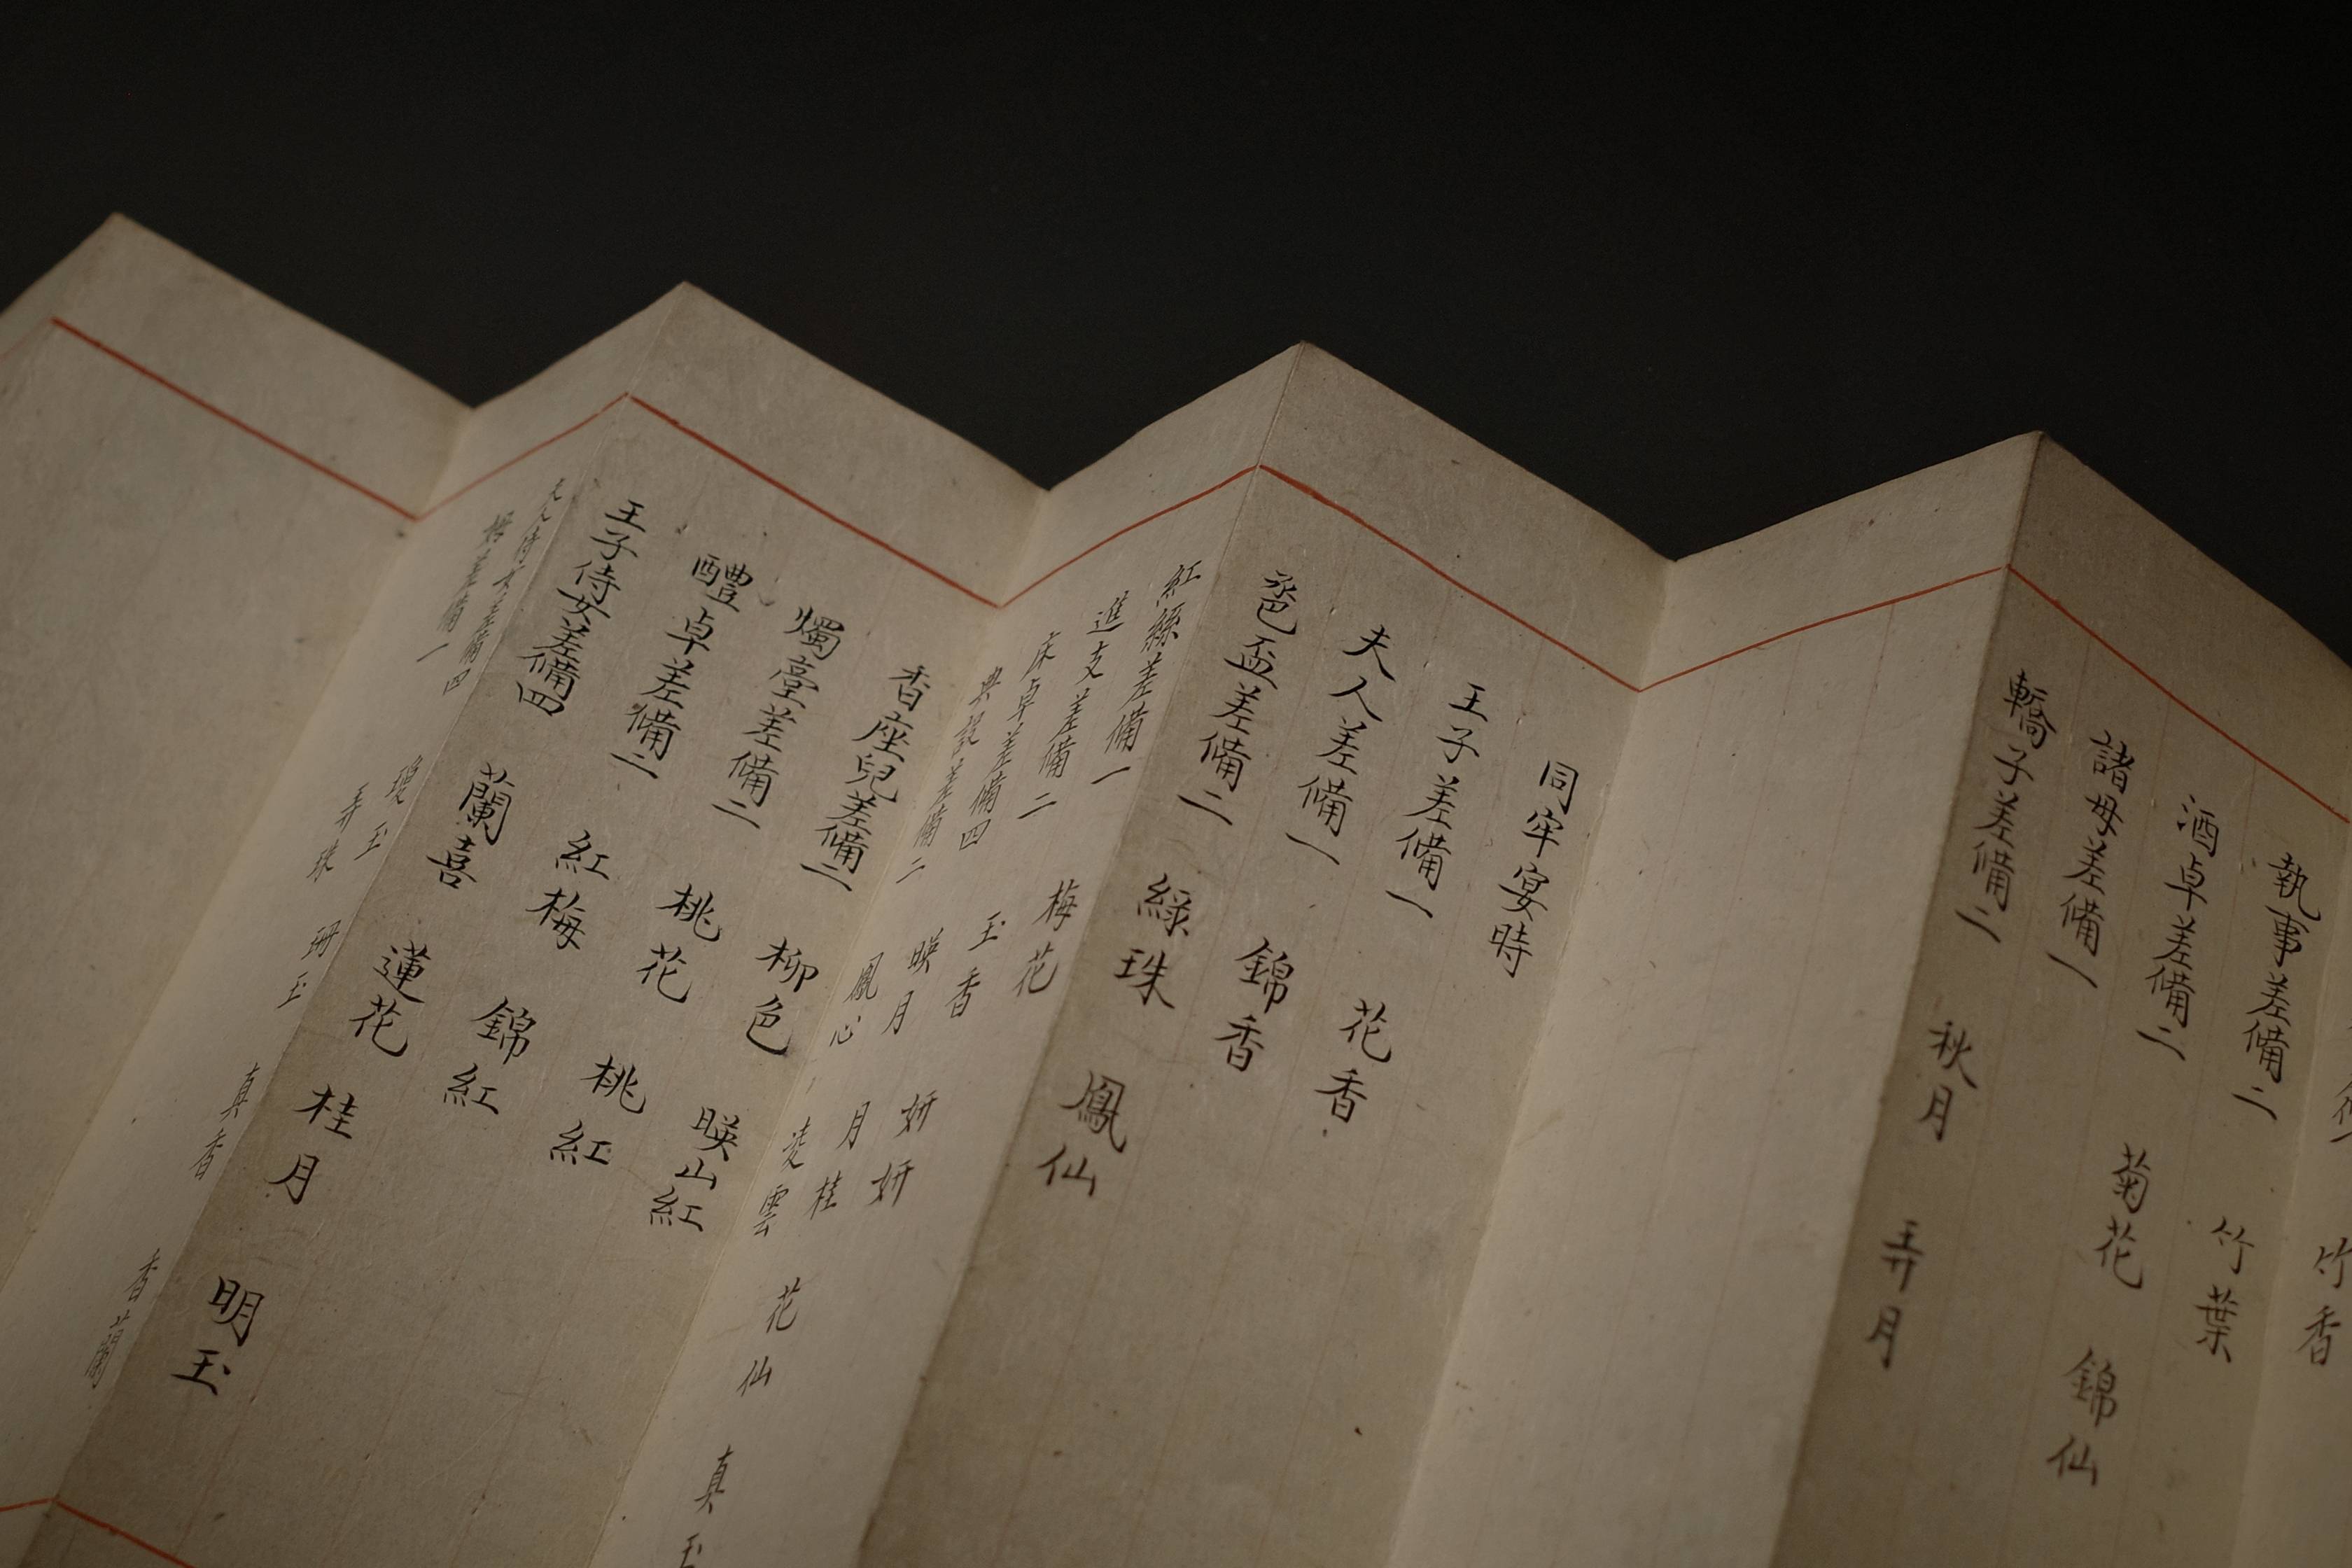 竹香
執事差備二 竹葉
酒卓差備二 菊花 錦仙
諸母差備一
轎子差備二 秋月 弄月
同牢宴時
王子差備一 花香
夫人差備一 錦香
卺盃差備二 綠珠 鳳仙
紅絲差備一 梅花
進支差備二 玉香
床卓差備四 暎月 妍妍 花仙 真玉
差備二 鳳心 月桂
凌雲
香座兒差備二 柳色 暎山紅
燭臺差備二 桃花 桃紅
醴卓差備二 紅梅 錦紅
王子侍女差備四 蘭喜 蓮花 桂月 明玉
夫人侍女差備四 瓊玉 珊玉 真香 香蘭
差備一 弄珠